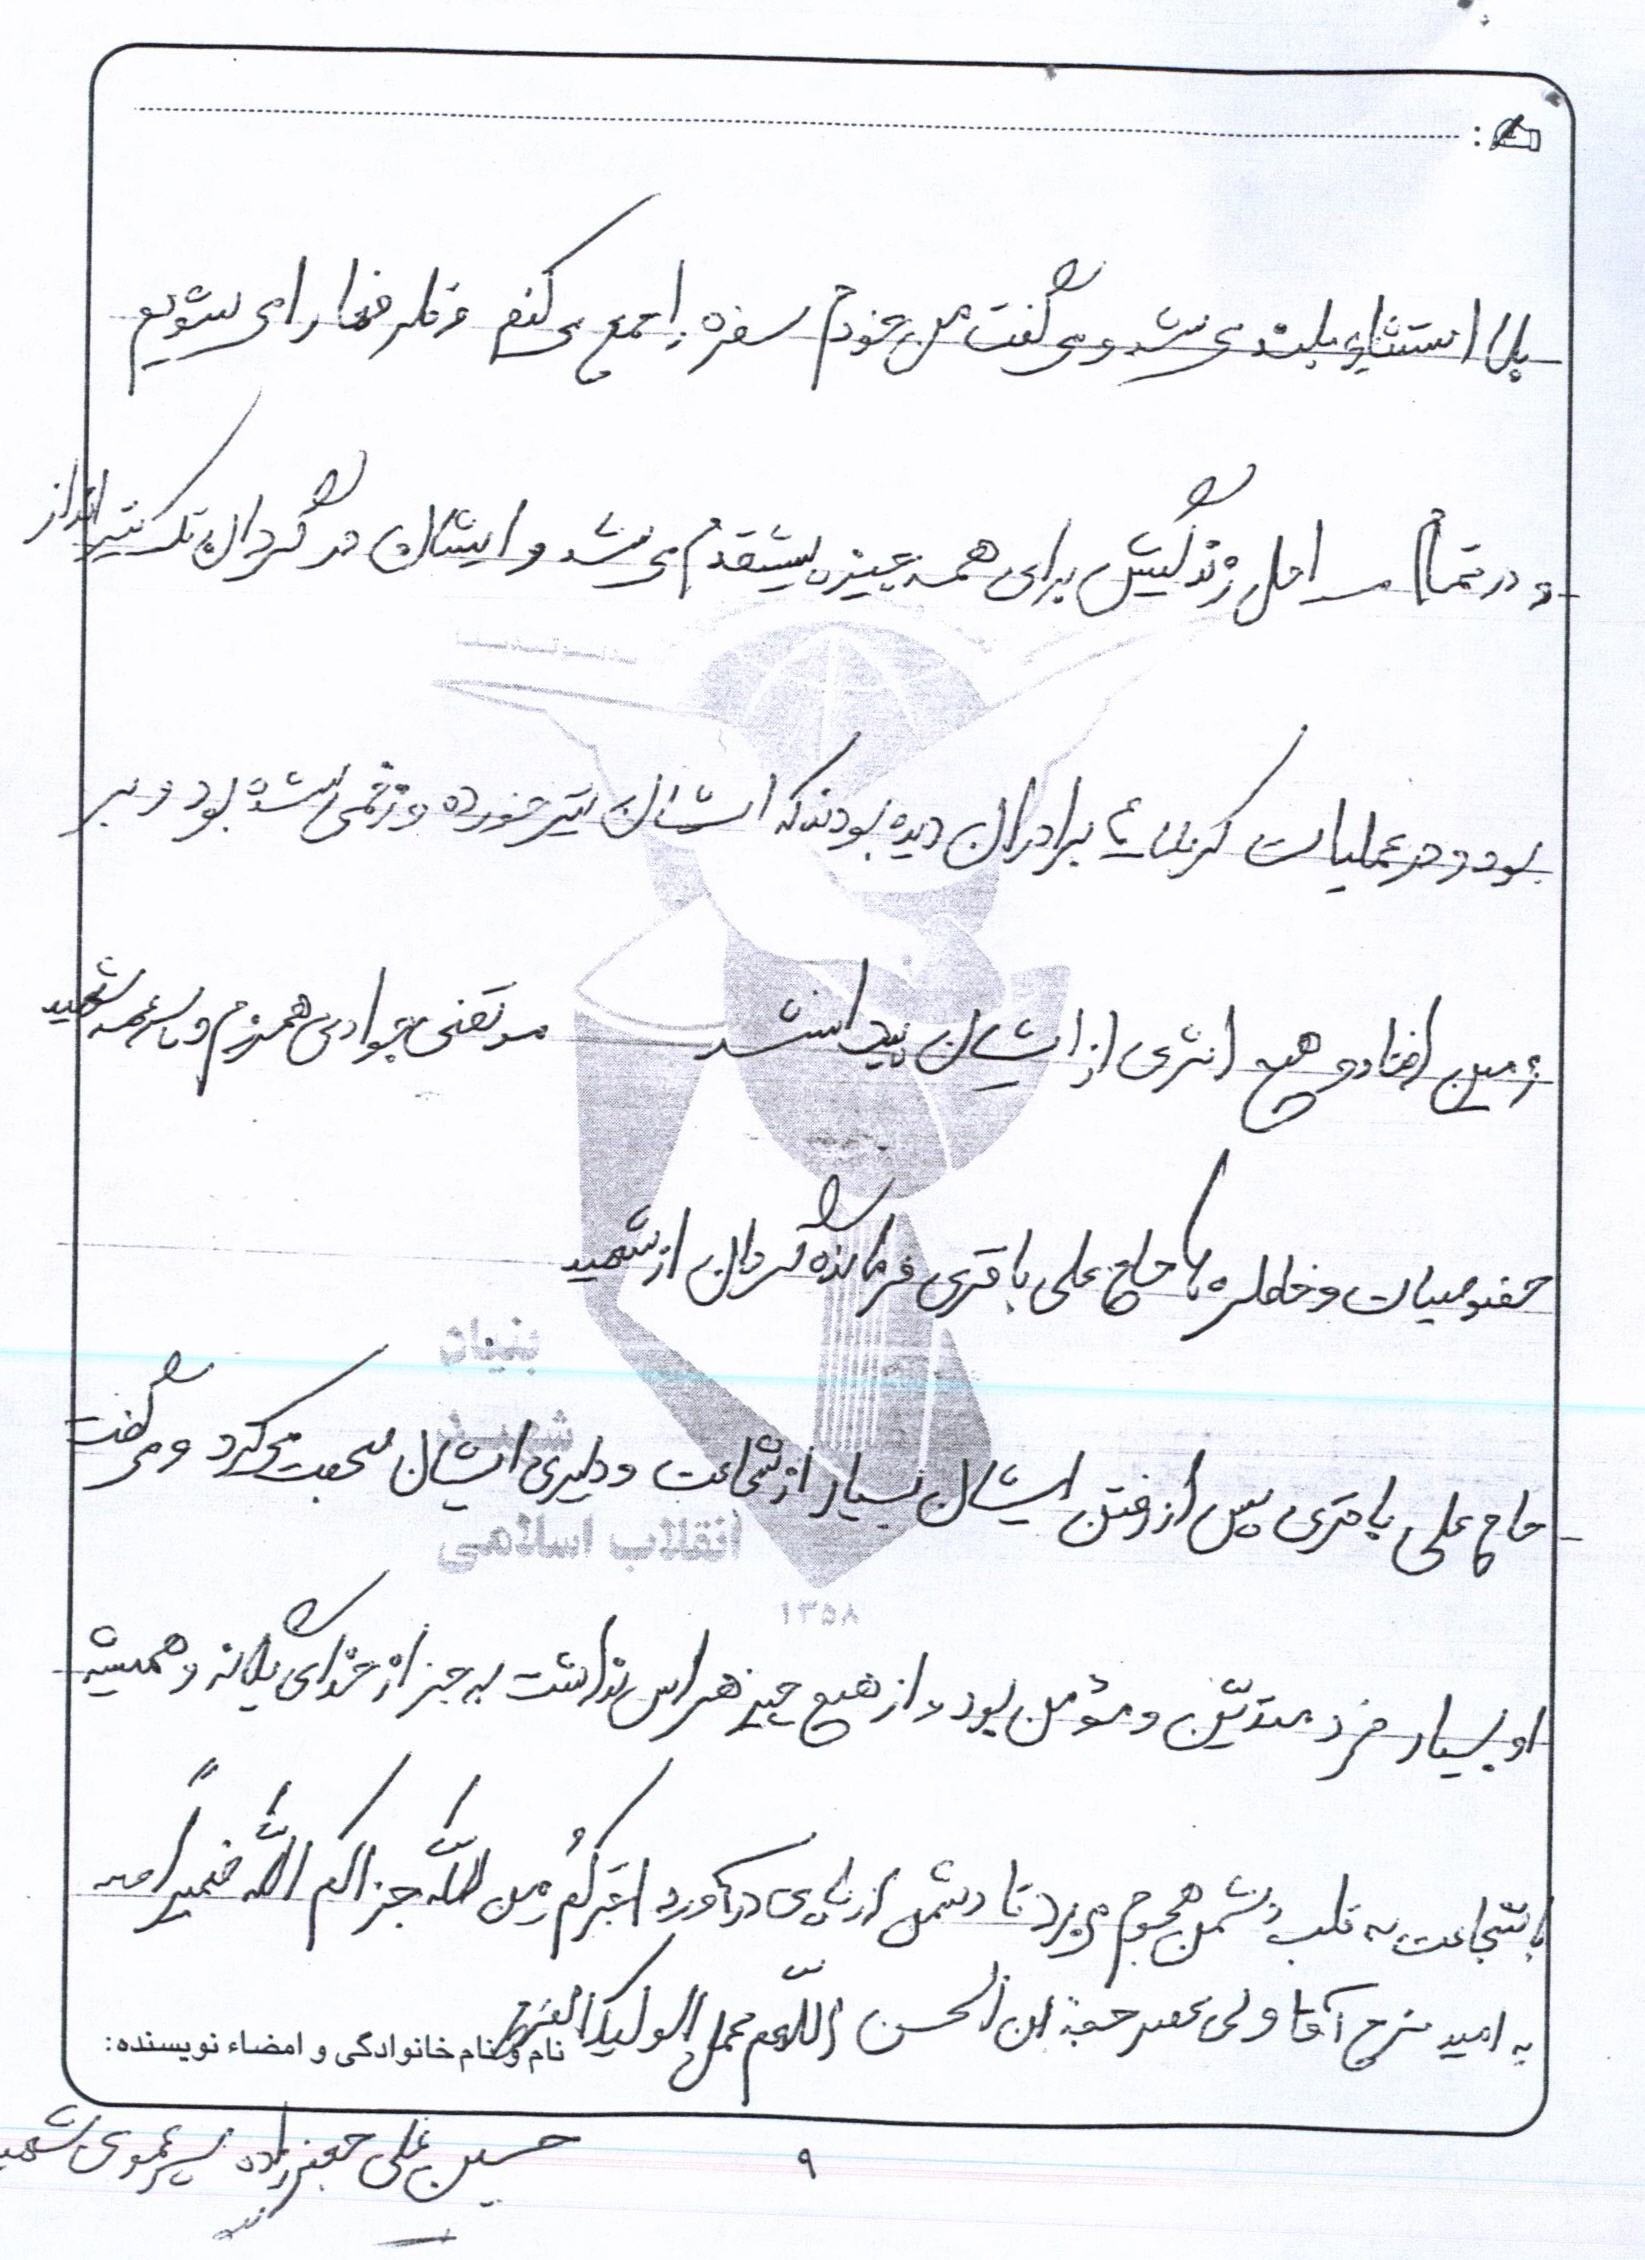 بلا استثناء بلند می شد و می گفت من خودم سفره را جمع می کنم و ظرفها را می شویم
و در تمام مراحل زندگیش برای همه چیز پیشقدم می شد و ایشان در گردان تک تیرانداز
بود و در عملیات کربلای ۴ برادران دیده بودند که ایشان تیر خورده و زخمی شده بود و بر
زمین افتاد و هیچ اثری از ایشان پیدا نشد مرتضی جوادی همرزم و پسر عمه شهید
خصوصیات و خاطره با حاج علی باقری فرمانده گردان از شهید
حاج علی باقری پس از رفتن ایشان بسیار از شجاعت و دلیری ایشان صحبت می کرد و می گفت
او بسیار فرد متدیّن و مؤمن بود و از هیچ چیز هراس نداشت به جز از خدای یگانه و همیشه
با شجاعت به قلب دشمن هجوم می برد تا دشمن از پای درآورد اجرکُم من اللّه جزاکم اللّه خیراً
به امید فرج آقا ولی عصر حجة ابن الحسن اللّهم عجل لولیک الفرج
نام و نام خانوادگی و امضاء نویسنده:
حسین علی جعفرزاده پسر عموی شهید
۹
بنیاد
شهید
انقلاب اسلامی
۱۳۵۸